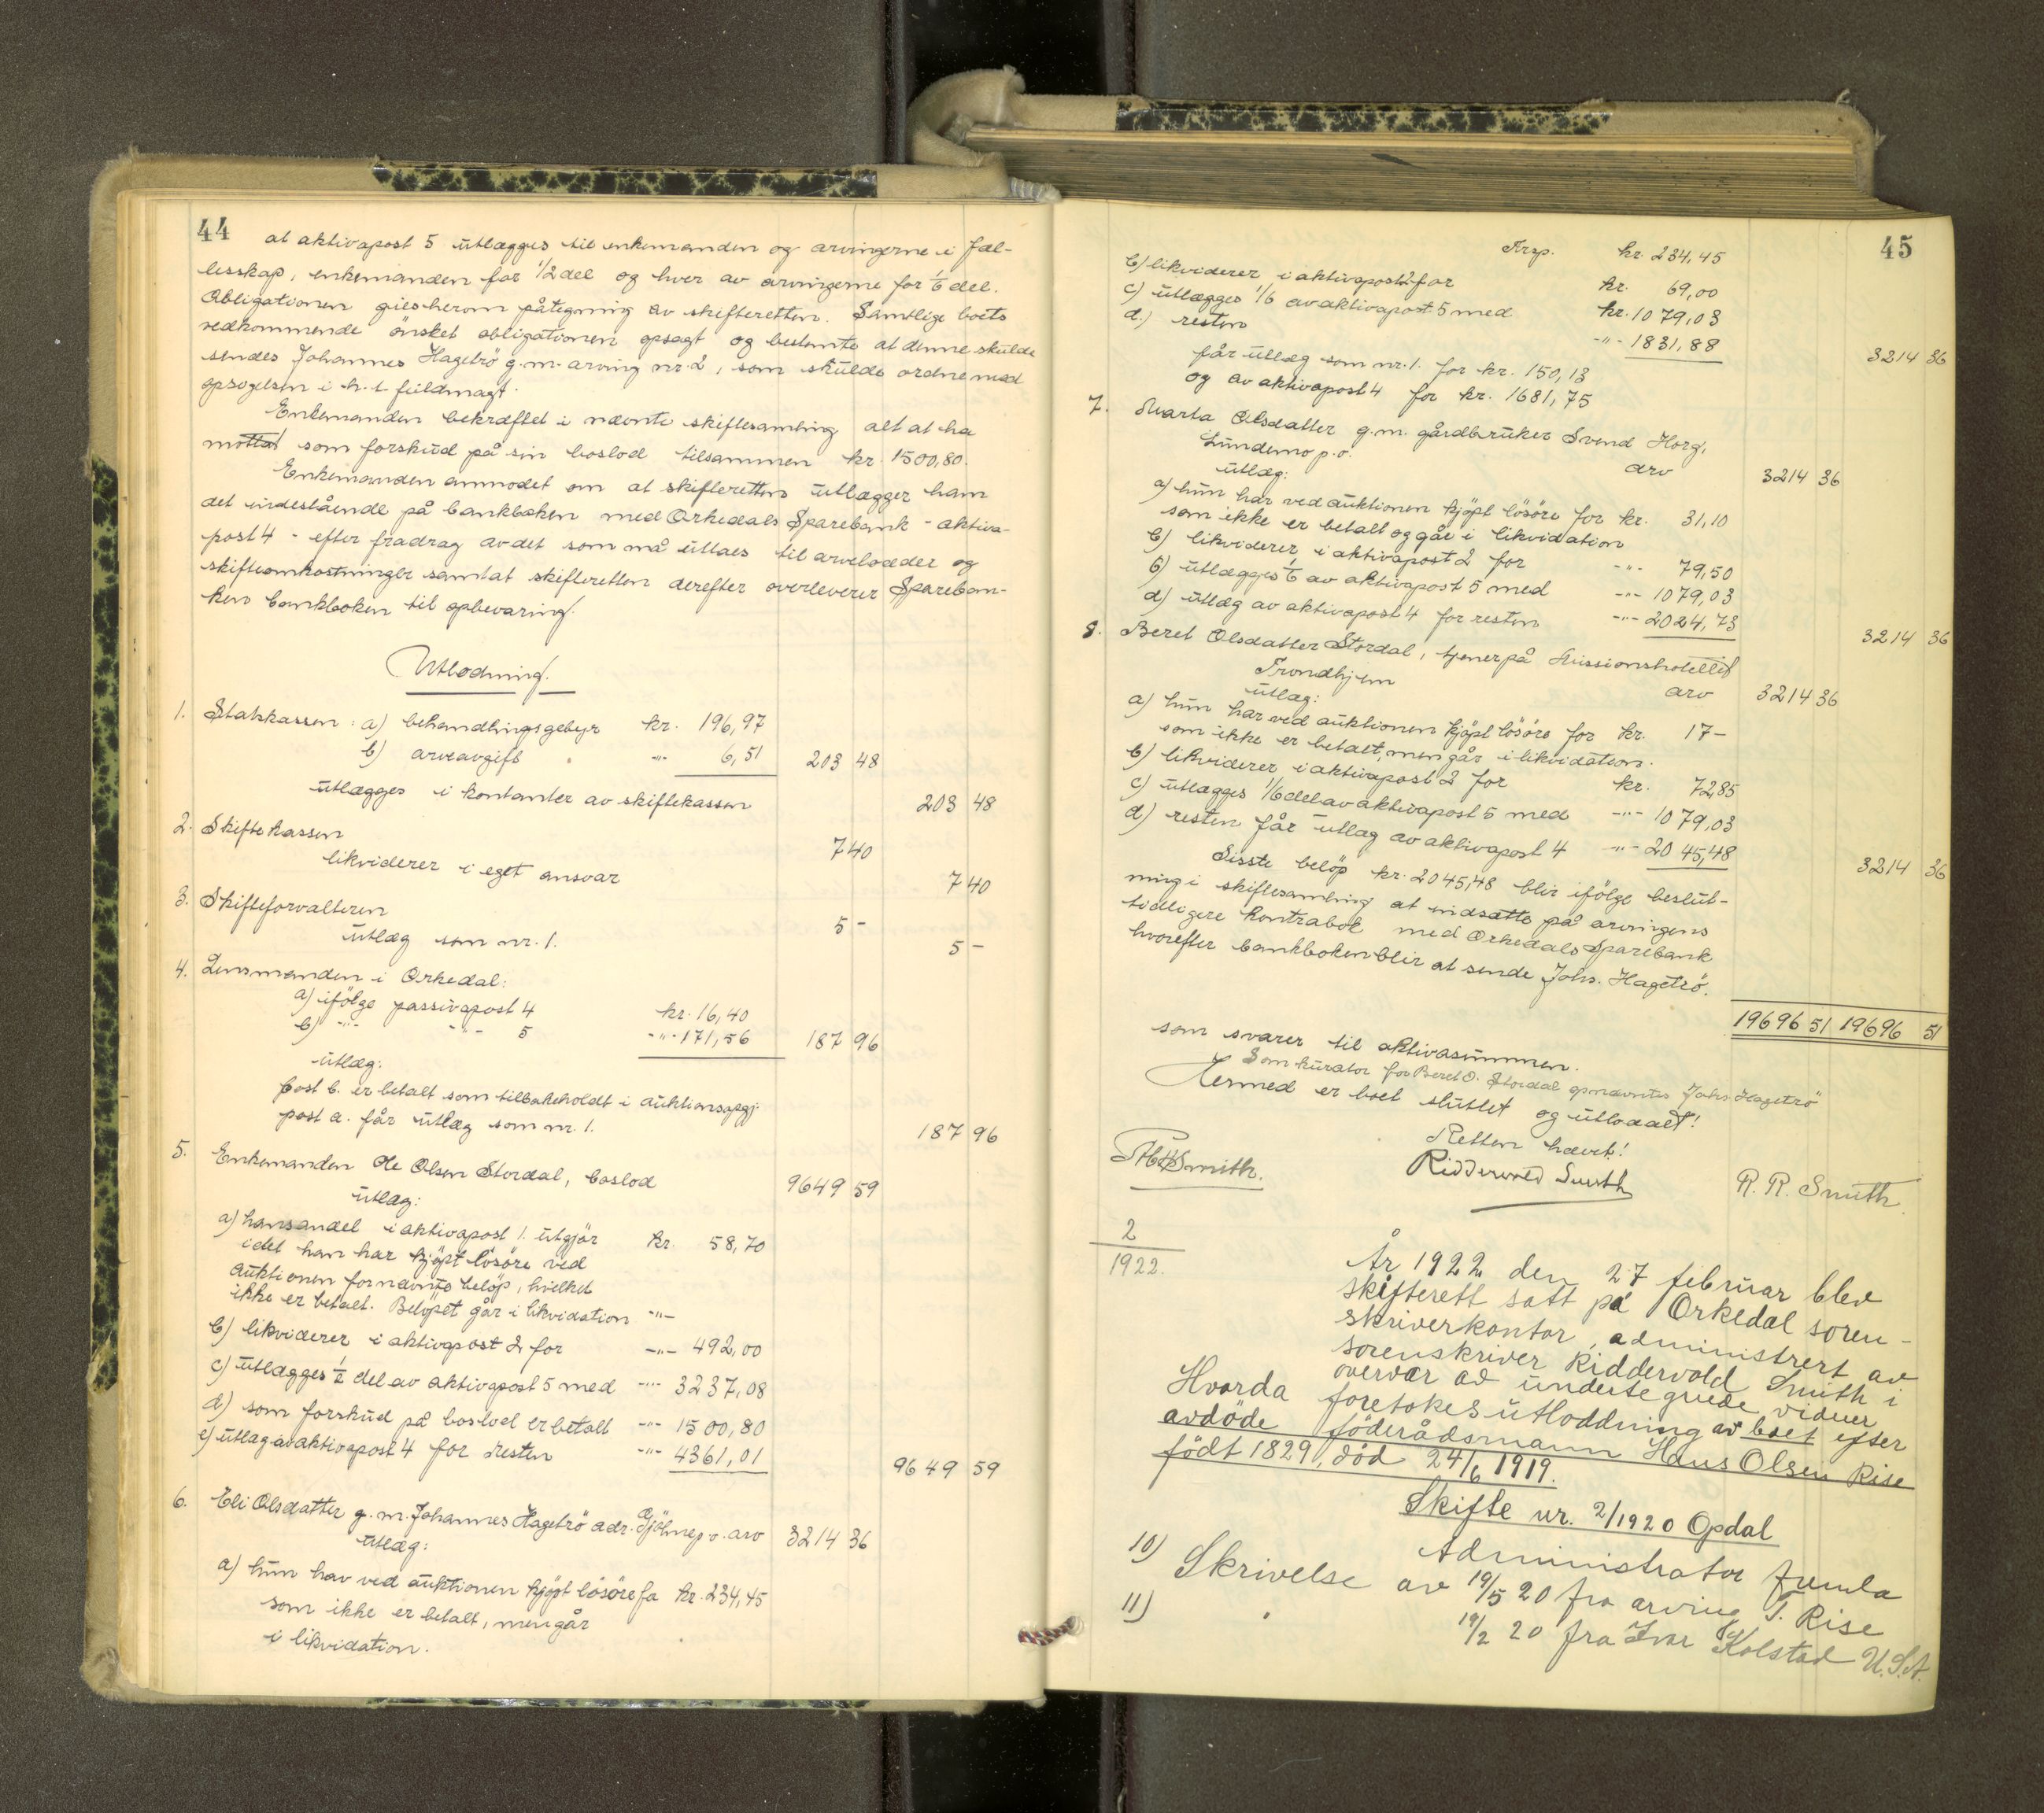 44
at aktivapost 5 utlægges til enkemanden og arvingerne i fæl-
lesskap, enkemanden for 1/2 del og hver av arvingerne for 1/6 del.
Obligationen gies herom påtegning av skifteretten. Samtlige boets
vedkommende ønsket obligationen opsagt og bestemte at denne skulde
sendes Johannes Hagetrö g.m. arving nr. 2, som skulde ordne med
opsigelsen i h.t. fuldmagt.
Enkemanden bekræftet i nævnte skiftesamling alt at ha
mottat som forskud på sin boslod tilsammen kr. 1500,80.
Enkemanden anmodet om at skifteretten utlægger ham
det indestående på bankboken med Orkedals Sparebank - aktiva-
post 4 - efter fradrag av det som må uttaes til arvelodder og
skifteomkostninger samt at skifteretten derefter overleverer Spareban-
ken bankboken til opbevaring.
Utlodning.
1. Statskassen: a) behandlingsgebyr kr. 196,97
b) arveavgift -"- 6,51 203 48
utlægges i kontanter av skiftekassen 203 48
2. Skiftekassen 7 40
likviderer i eget ansvar 7 40
3. Skifteforvalteren 5 -
utlæg som nr. 1. 5 -
4. Lensmanden i Orkedal:
a) ifölge passivapost 4 kr. 16,40
b) -"- -"- 5 -"- 171,56 187 96
utlæg:
post b. er betalt som tilbakeholdt i auktionsopgj.
post a. får utlæg som nr. 1. 187 96
5. Enkemanden Ole Olsen Stordal, boslod 9649 59
utlæg:
a) hans andel i aktivapost 1. utgjör kr. 58,70
idet han har kjöpt lösöre ved
auktionen for nævnte belöp, hvilket
ikke er betalt. Belöpet går i likvidation -"-
b) likviderer i aktivapost 2 for -"- 492,00
c) utlægges 1/2 del av aktivapost 5 med -"- 3237,08
d) som forskud på boslod er betalt -"- 1500,80
e) utlæg av aktivapost 4 for resten -"- 4361,01
9649 59
6. Eli Olsdatter g.m. Johannes Hagetrö adr. Gjölme p.o. arv 3214 36
utlæg:
a) hun har ved auktionen kjöpt lösöre for kr. 234,45
som ikke er betalt, men går
i likvidation.
45
Trsp. kr. 234,45
b) likviderer i aktivapost 2 for kr. 69,00
c) utlægges 1/6 av aktivapost 5 med kr. 1079,03
d.) resten -"- 1831,88
3214 36
får utlæg som nr. 1. for kr. 150,13
og av aktivapost 4 for kr. 1681,75
7. Marta Olsdatter g.m. gårdbruker Svend Horg,
Lundemo p.o. arv 3214 36
utlæg:
a) hun har ved auktionen kjöpt lösöre for kr. 31,10
som ikke er betalt og går i likvidation
b) likviderer i aktivapost 2 for -"- 79,50
c) utlægges 1/6 av aktivapost 5 med -"- 1079,03
d) utlæg av aktivapost 4 for resten -"- 2024,73
3214 36
8. Beret Olsdatter Stordal, tjener på Missionshotellet
Trondhjem arv 3214 36
utlæg:
a) hun har ved auktionen kjöpt lösöre for kr. 17 -
som ikke er betalt, men går i likvidation.
b) likviderer i aktivapost 2 for kr. 72,85
c) utlægges 1/6 del av aktivapost 5 med -"- 1079,03
d) resten får utlæg av aktivapost 4 -"- 2045,48
3214 36
Sisste belöp kr. 2045,48 blir ifölge beslut-
ning i skiftesamling at indsætte på arvingens
tidligere kontrabok med Orkedals Sparebank
hvorefter bankboken blir at sende Johs. Hagetrö.
19696 51 19696 51
som svarer til aktivasummen.
Som kurator for Beret O. Stordal opnævntes Johs. Hagetrö
Hermed er boet sluttet og utloddet!
Retten hævet!
Ridderwold Smith
Smith.
R. R. Smith.
2
1922.
År 1922 den 27 februar blev
skifterett satt på Orkedal soren-
skriverkontor, administrert av
sorenskriver Riddervold Smith i
overvær av undertegnede vidner
Hvorda foretokes utloddning av boet efter
avdöde föderådsmann Hans Olsen Rise
födt 1829, död 24/6 1919.
Skifte nr. 2/1920 Opdal
Administrator fremla
10) Skrivelse av 19/5 20 fra arving T. Rise
11) " 19/2 20 fra Ivar Kolstad U.S.A.